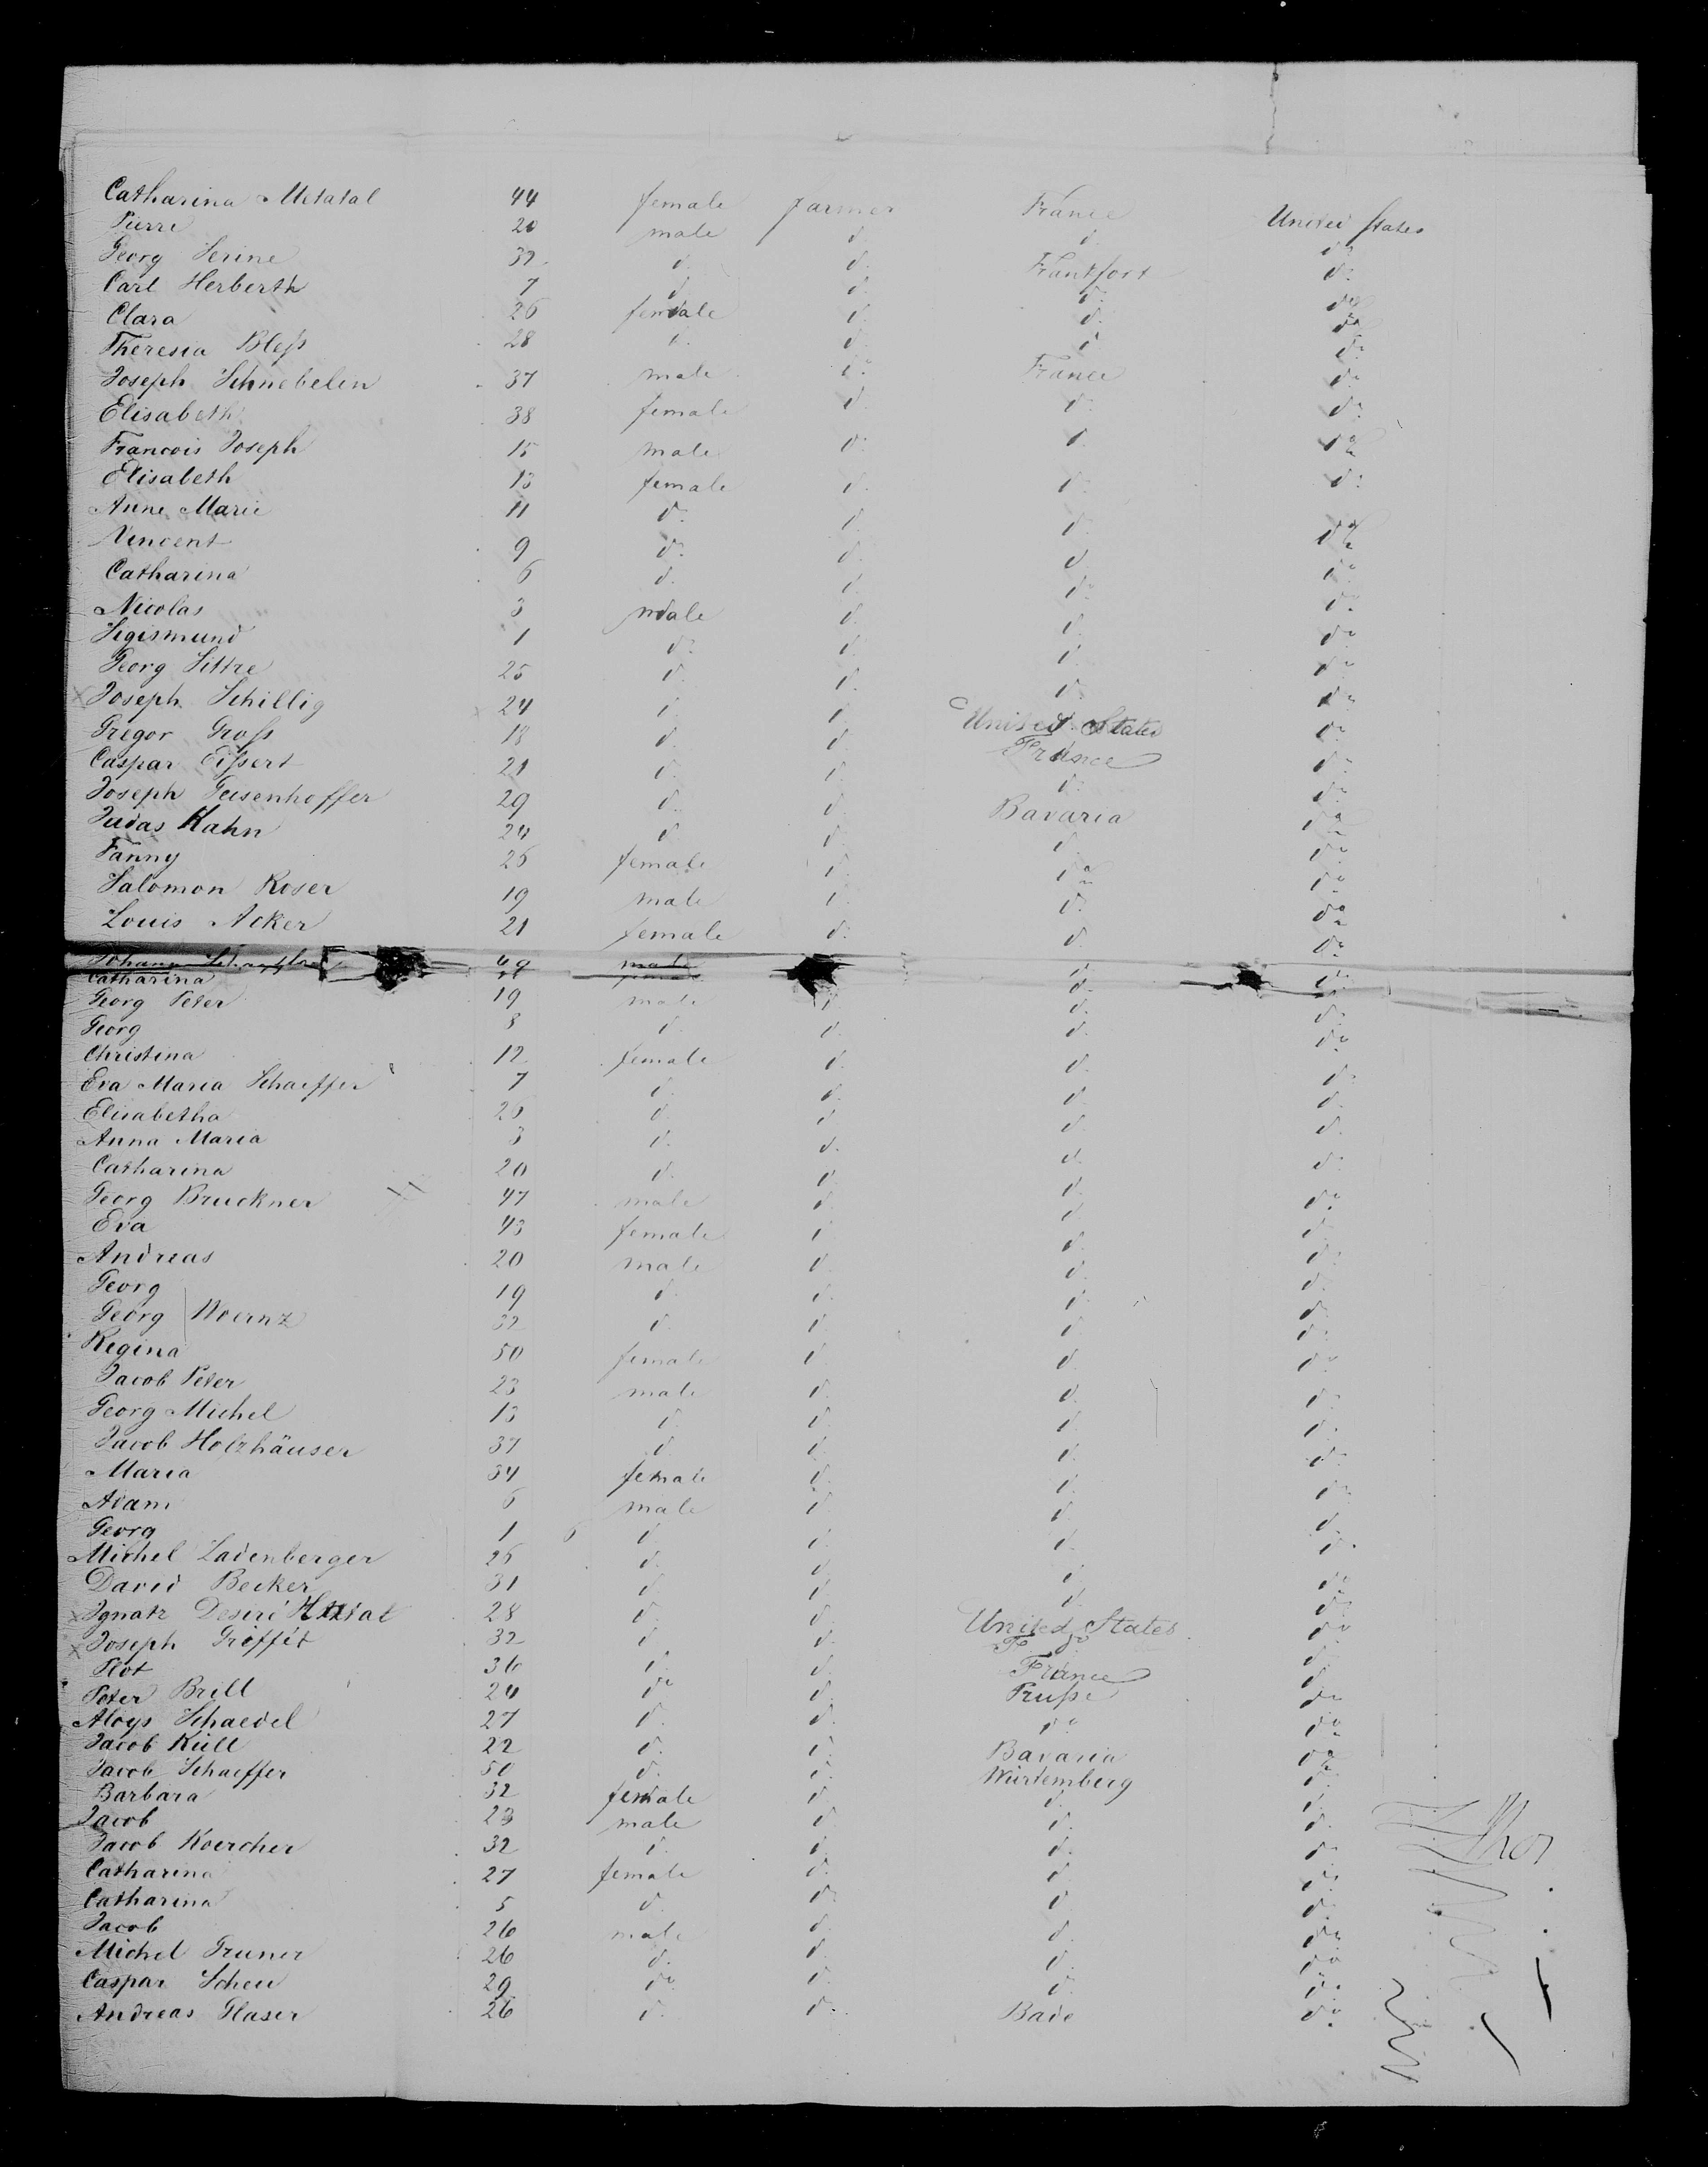 Catharina Metatal 44 female farmer France United States
Pierre 20 male d. d. do
Georg Serine 32 d. d. Frankfort do
Carl Herberth 7 d. d. d. do
Clara 26 female d. d. do
Theresia Bleß 28 d. d. d. do
Joseph Schnebelen 37 male do France do
Elisabeth 38 female d. d. do
Francois Joseph 15 male d. d. do
Elisabeth 13 female d. d. do
Anne Marie 11 d. d. d. do
Vincent 9 d. d. d. do
Catharina 6 d. d. do do
Nicolas 3 male d. d. do
Sigismund 1 do d. d. do
Georg Sittre 25 d. d. d. do
Joseph Schillig 24 d. d. United States do
Gregor Groß 18 d. d. France do
Caspar Eißert 21 d. d. d. do
Joseph Geisenhoffer 29 d. d. Bavaria do
Judas Kahn 24 d. d. d. do
Fanny 26 female d. do do
Salomon Koser 19 male d. d. do
Louis Acker 21 female d. d. do
Johann 49 male d. d.
Catharina d. d.
Georg Peter 19 male d. d. d.
Georg 8 d. d. d. do
Christina 12 female d. d. d.
Eva Maria Schaeffer 7 d. d. d. d.
Elisabetha 26 d. d. d. d.
Anna Maria 3 d. d. d. d.
Catharina 20 d. d. d. do
Georg Bruckner 47 male d. d. d.
Eva 43 female d. d. d.
Andreas 20 male d. d. d.
Georg 19 d. d. d. d.
Georg Woernz 32 d. d. d. d.
Regina 50 female d. d. do
Jacob Peter 23 male d. d. d.
Georg Michel 13 d. d. d. d.
Jacob Holzhäuser 37 d. d. d. d.
Maria 34 female d. d. d.
Adam 6 male d. d. d.
Georg 1 d. d. d. d.
Michel Ladenberger 26 d. d. d. do
David Becker 31 d. d. d. do
Ignatz Desiré 28 d. d. United States do
Joseph Groffét 32 d. d. do d.
Plot 36 d. d. France d.
Peter Brill 24 do d. Pruße do
Aloys Schaedel 27 d. d. do do
Jacob Küll 22 d. d. Bavaria do
Jacob Schaeffer 50 d. d. Würtemberg d.
Barbara 32 female d. d. d.
Jacob 23 male d. d. d.
Jacob Koercher 32 d. d. d. d.
Catharina 27 female d. d. d.
Catharina 5 d. d. d. d.
Jacob 26 male d. d. do
Michel Gruner 26 d. d. d. do
Caspar Scheu 29 do d. d. do
Andreas Glaser 26 d. d. Bade do